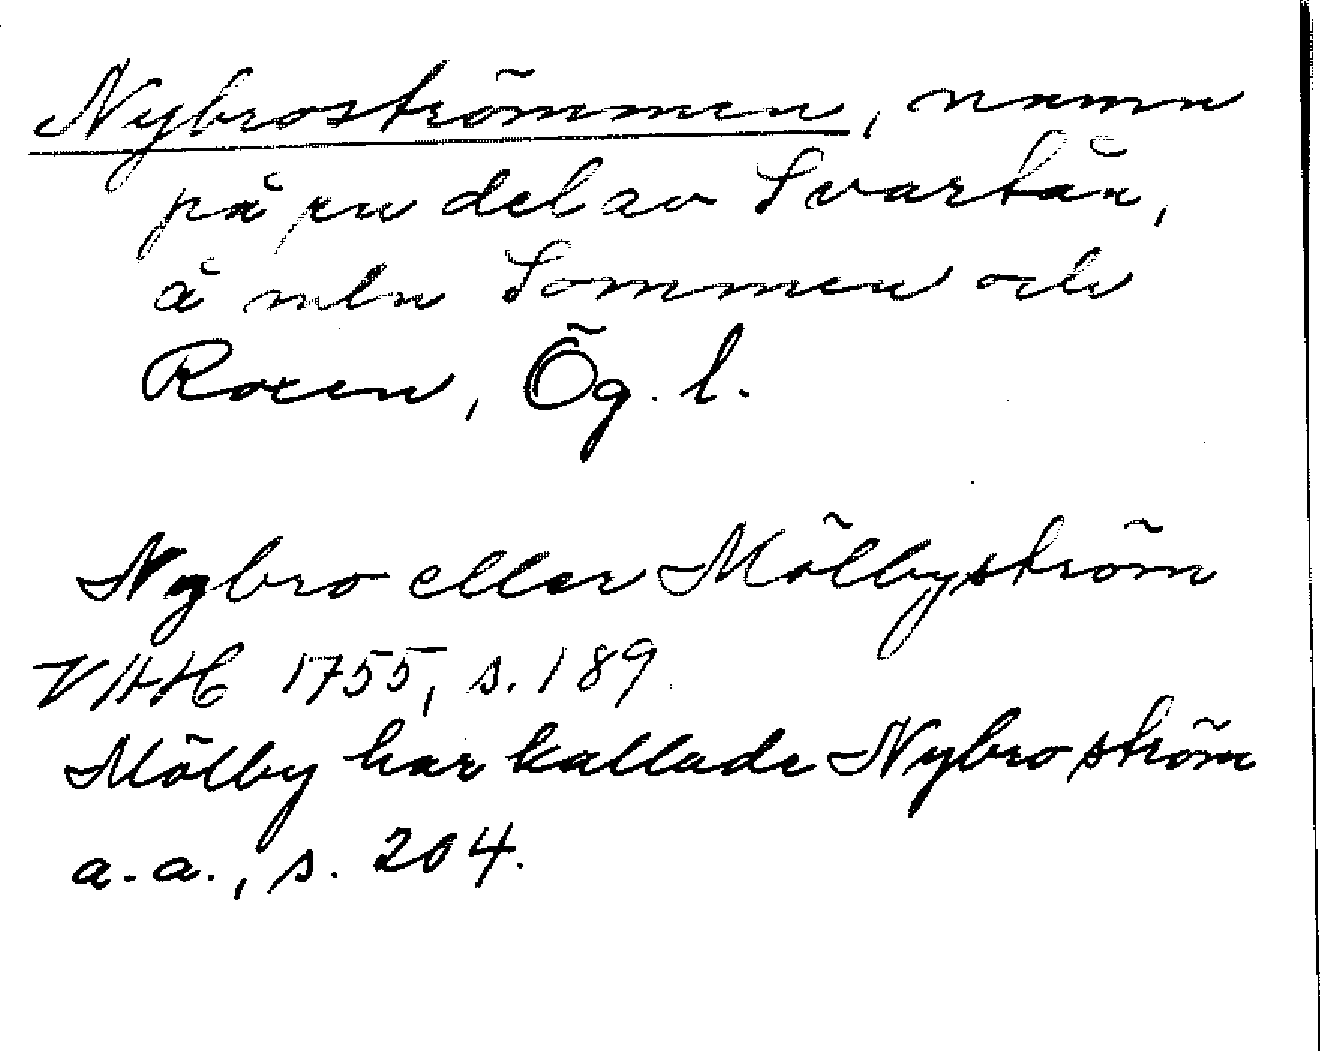 Nybroströmmen, namn
på en del av Svartån,
å mln Sommen och
Roxen, Ög. l.
Nybro eller Mölbyström
VAH 1755, s. 189.
Mölby här kallade Nybro ström
a.a., s. 204.